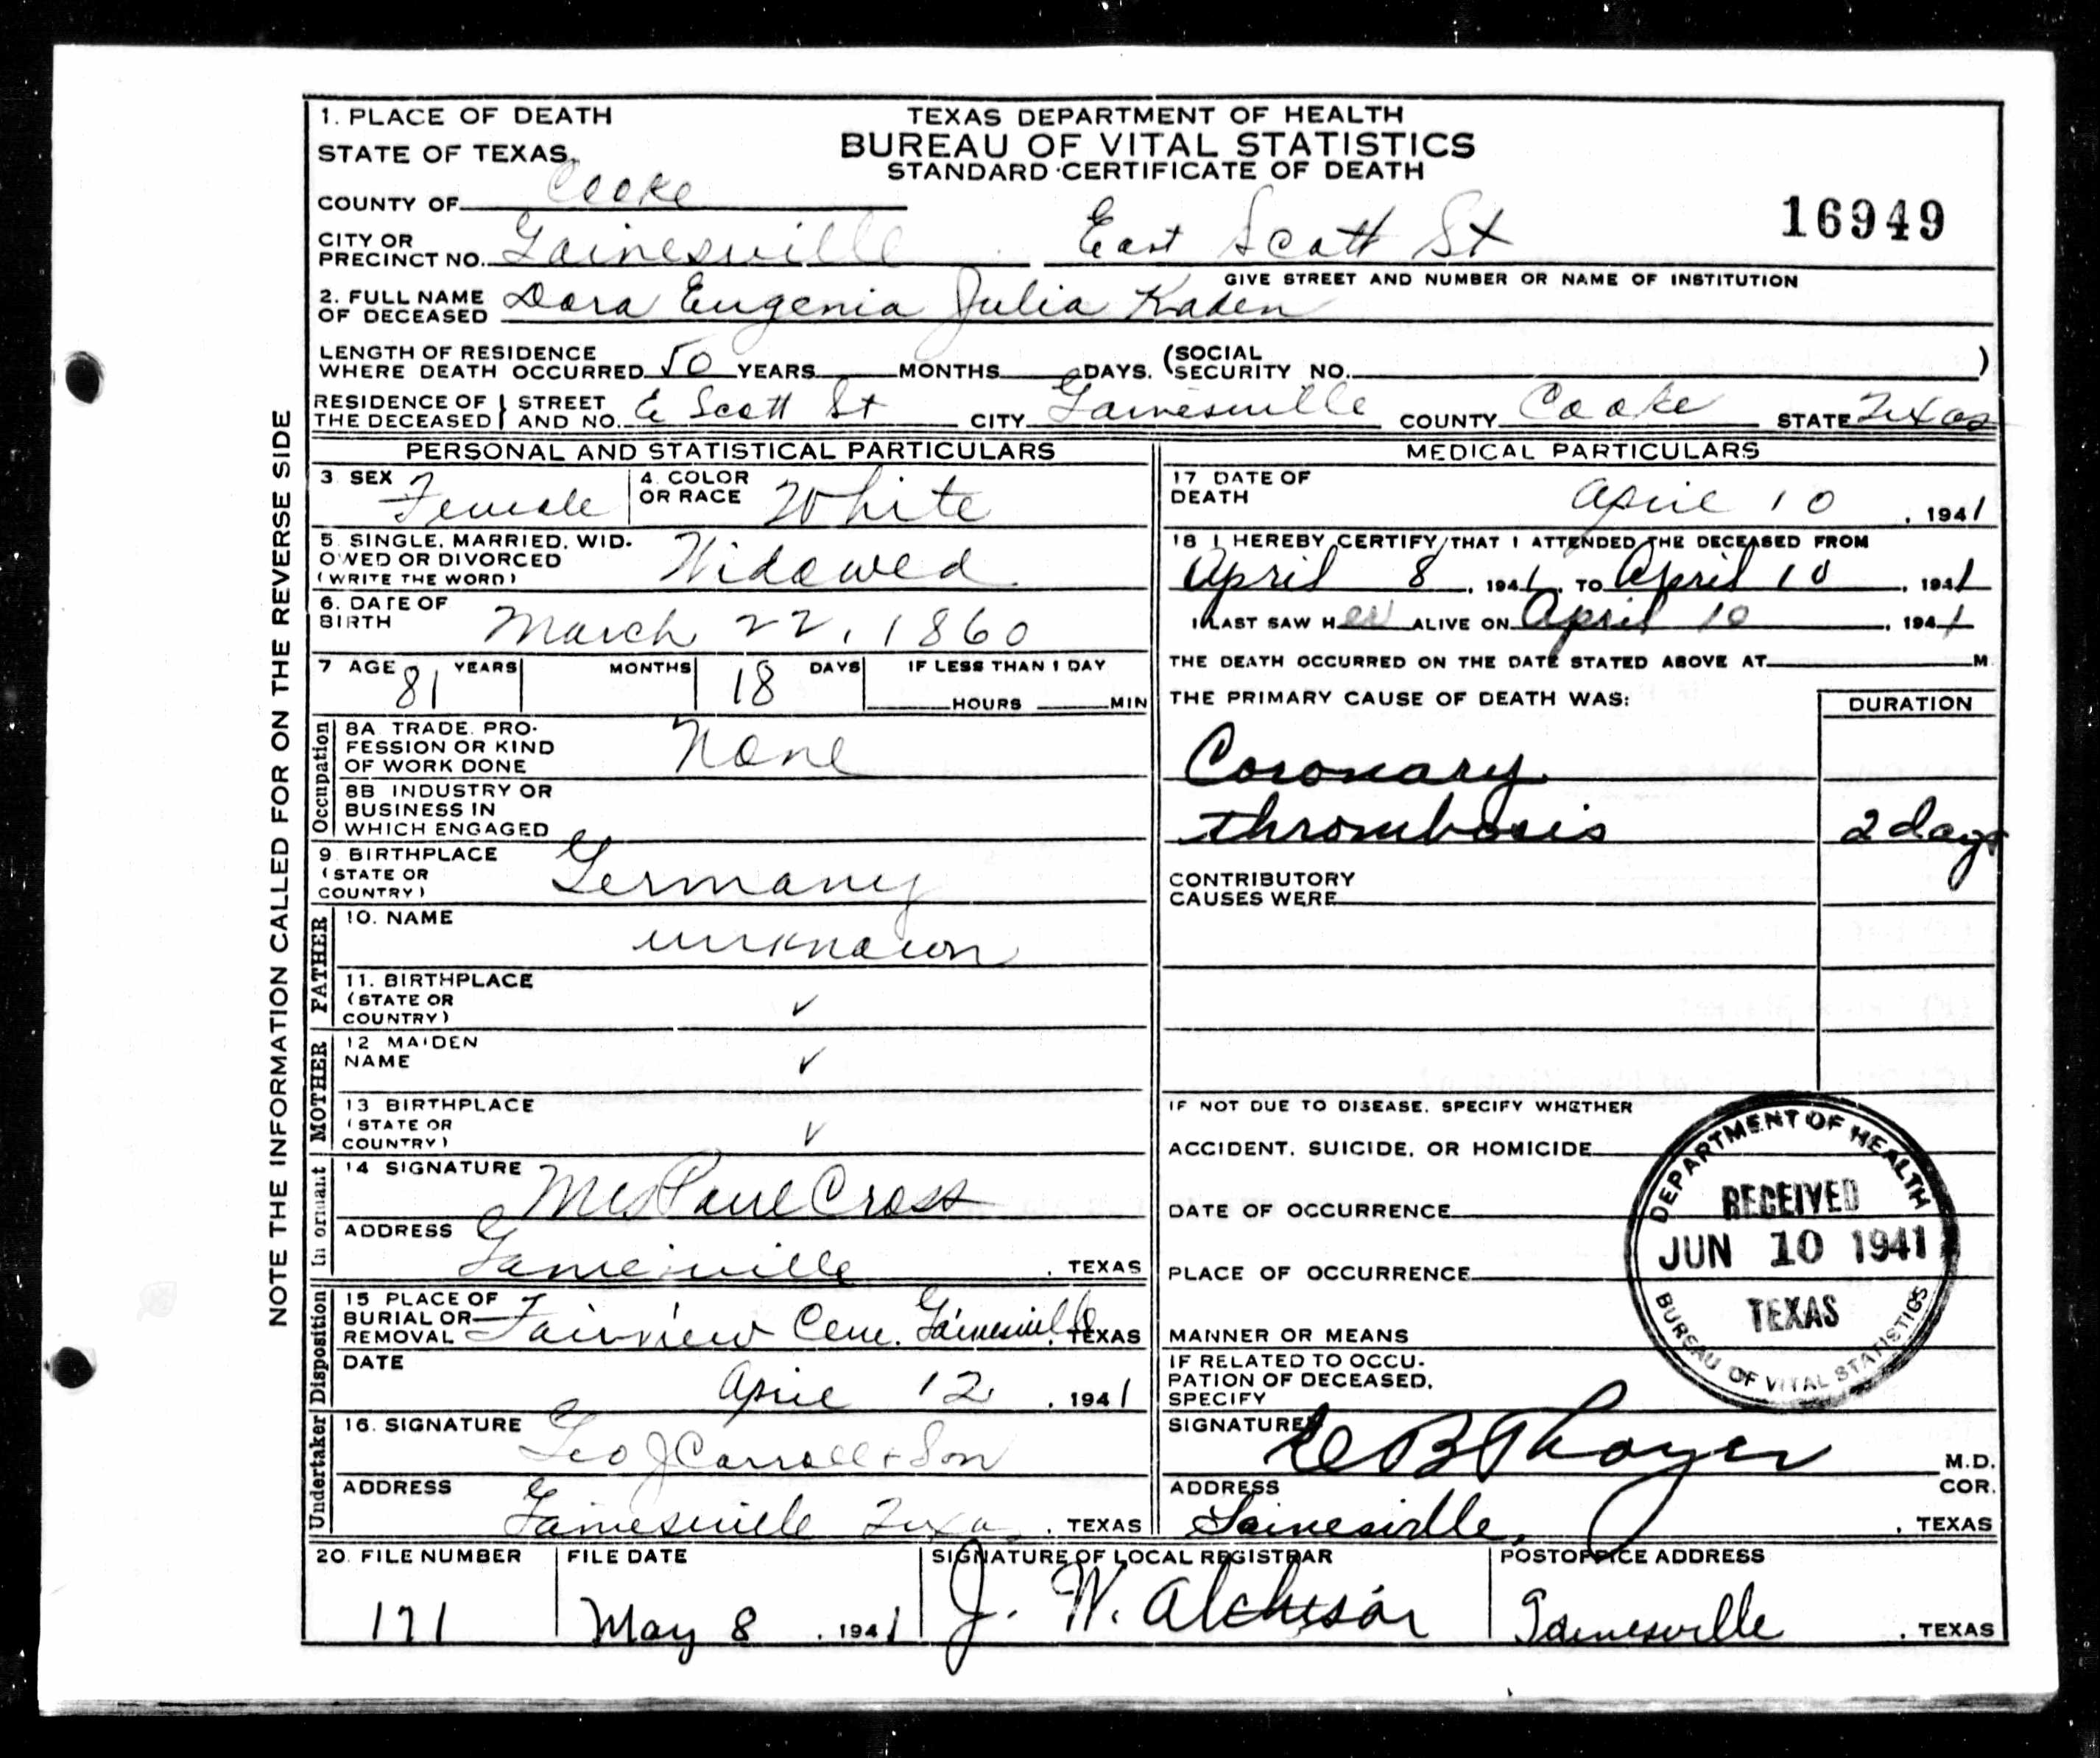 1. PLACE OF DEATH
STATE OF TEXAS
COUNTY OF Cooke
CITY OR PRECINCT NO. Gainesville
TEXAS DEPARTMENT OF HEALTH
BUREAU OF VITAL STATISTICS
STANDARD CERTIFICATE OF DEATH
16949
East Scott St
GIVE STREET AND NUMBER OR NAME OF INSTITUTION
2. FULL NAME OF DECEASED Dora Eugenia Julia Kaden
LENGTH OF RESIDENCE WHERE DEATH OCCURRED 50 YEARS MONTHS DAYS. (SOCIAL SECURITY NO. )
RESIDENCE OF THE DECEASED } STREET AND NO. E Scott St CITY Gainesville COUNTY Cooke STATE Texas
NOTE THE INFORMATION CALLED FOR ON THE REVERSE SIDE
PERSONAL AND STATISTICAL PARTICULARS
3. SEX Female 4. COLOR OR RACE White
5. SINGLE, MARRIED, WIDOWED OR DIVORCED (WRITE THE WORD) Widowed
6. DATE OF BIRTH March 22, 1860
7 AGE 81 YEARS MONTHS 18 DAYS IF LESS THAN 1 DAY HOURS MIN
Occupation
8A. TRADE, PROFESSION OR KIND OF WORK DONE None
8B INDUSTRY OR BUSINESS IN WHICH ENGAGED
9. BIRTHPLACE (STATE OR COUNTRY) Germany
FATHER
10. NAME unknown
11. BIRTHPLACE (STATE OR COUNTRY) ✓
MOTHER
12 MAIDEN NAME ✓
13 BIRTHPLACE (STATE OR COUNTRY) ✓
Informant
14 SIGNATURE Mrs Paul Cross
ADDRESS Gainesville, TEXAS
Undertaker Disposition
15 PLACE OF BURIAL OR REMOVAL Fairview Cem. Gainesville, TEXAS
DATE April 12, 1941
16. SIGNATURE Geo J Carroll + Son
ADDRESS Gainesville Texas, TEXAS
MEDICAL PARTICULARS
17 DATE OF DEATH April 10, 1941
18 I HEREBY CERTIFY THAT I ATTENDED THE DECEASED FROM
April 8, 1941, TO April 10, 1941
I LAST SAW HER ALIVE ON April 10, 1941
THE DEATH OCCURRED ON THE DATE STATED ABOVE AT M.
THE PRIMARY CAUSE OF DEATH WAS: DURATION
Coronary
thrombosis 2 days
CONTRIBUTORY CAUSES WERE
IF NOT DUE TO DISEASE, SPECIFY WHETHER
ACCIDENT, SUICIDE, OR HOMICIDE
DATE OF OCCURRENCE
PLACE OF OCCURRENCE
MANNER OR MEANS
IF RELATED TO OCCUPATION OF DECEASED, SPECIFY
DEPARTMENT OF HEALTH
RECEIVED
JUN 10 1941
TEXAS
BUREAU OF VITAL STATISTICS
SIGNATURE B Thayer M.D. COR.
ADDRESS Gainesville, TEXAS
20. FILE NUMBER 171
FILE DATE May 8, 1941
SIGNATURE OF LOCAL REGISTRAR J. W. Atchison
POSTOFFICE ADDRESS Gainesville, TEXAS